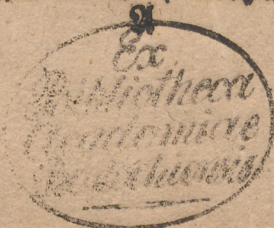 A
Ex
Bibliotheca
Academiae